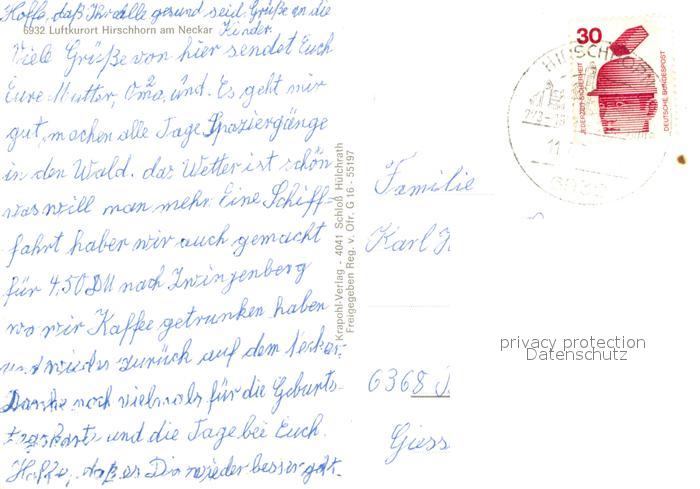 Hoffe, daß Ihr alle gesund seid. Grüße an die
Kinder.
6932 Luftkurort Hirschhorn am Neckar
Viele Grüße von hier sendet Euch
Eure Mutter, Oma, und. Es geht mir
gut, machen alle Tage Spaziergänge
in den Wald. das Wetter ist schön
was will man mehr. Eine Schiff-
fahrt haben wir auch gemacht
für 4.50 DM nach Zwingenberg
wo wir Kaffee getrunken haben
und wieder zurück auf dem Neckar.
Danke noch vielmals für die Geburts-
und die Tage bei Euch.
Hoffe, daß es Dir wieder besser geht.
Krapohl-Verlag - 4041 Schloß Hülchrath
Freigegeben Reg. v. Ofr. G 16 - 55197
30
JEDERZEIT SICHERHEIT
DEUTSCHE BUNDESPOST
HIRSCHHORN
11
6932
Familie
Karl
6368
Giess
privacy protection
Datenschutz